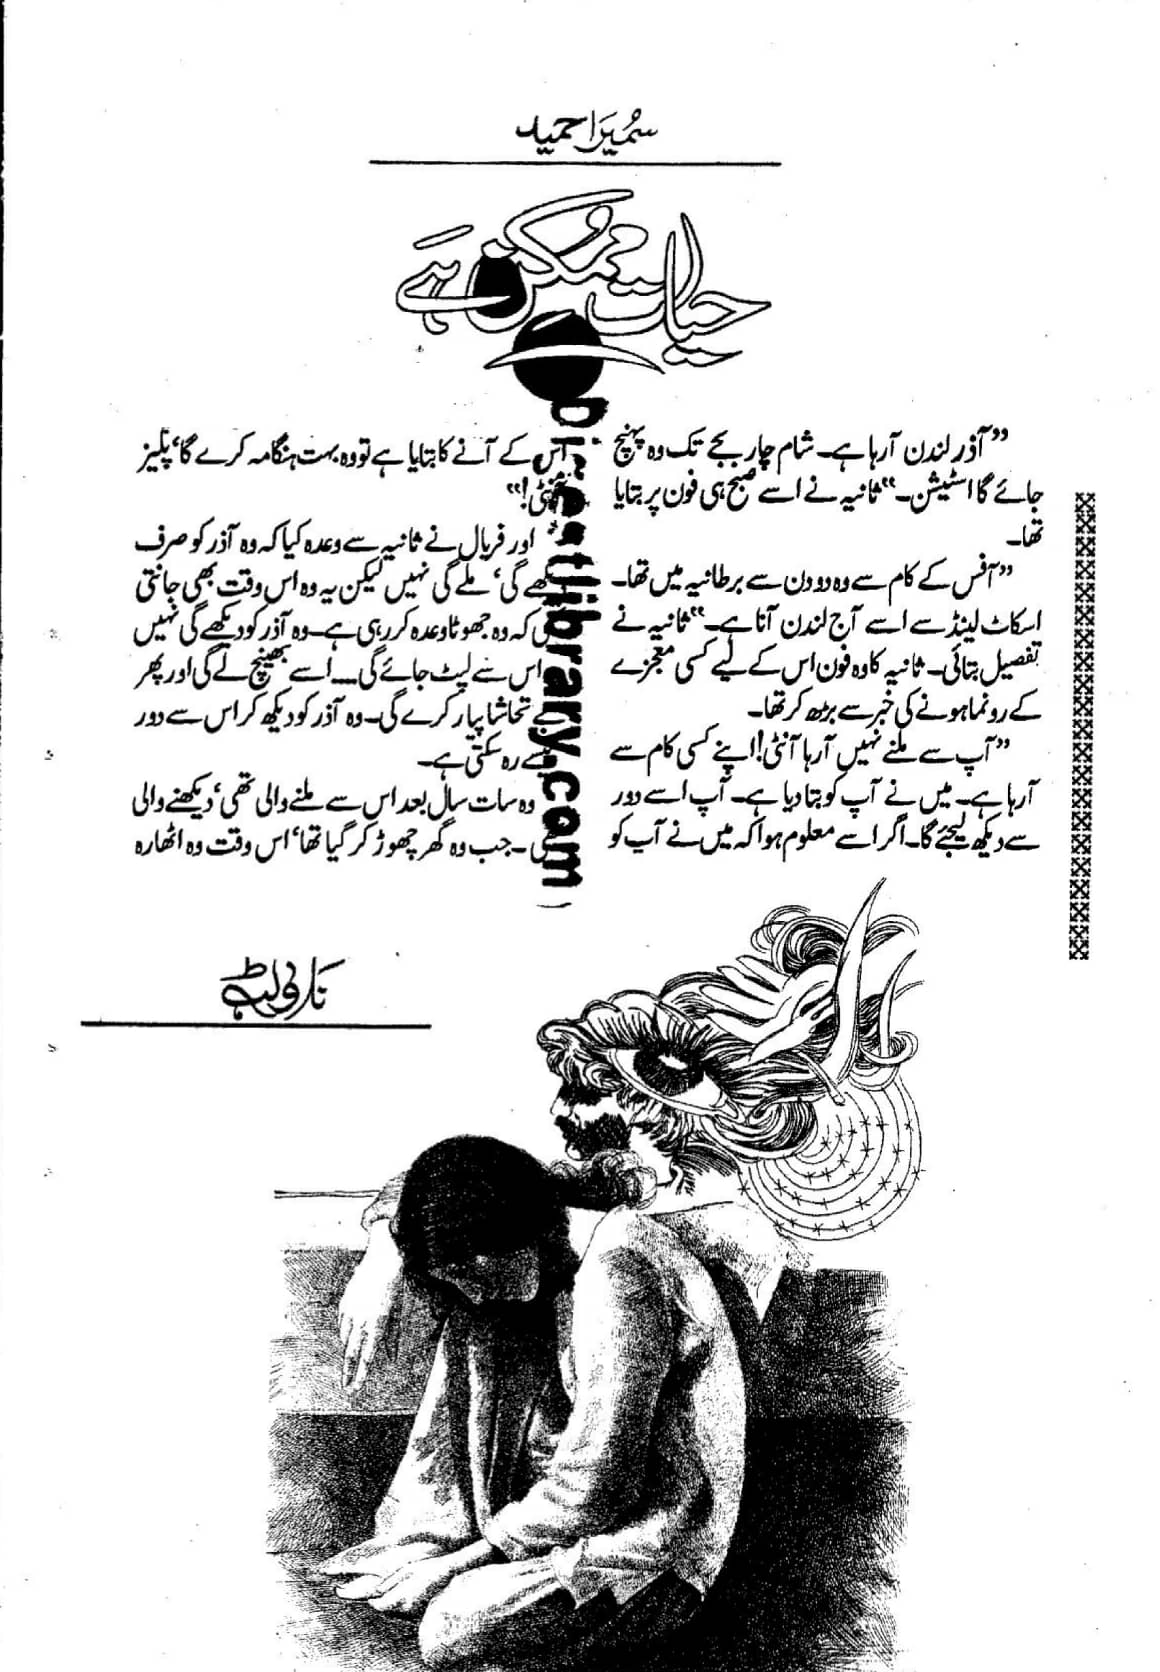 سُمیرا حمید
حیات ممکن ہے
”آذر لندن آرہا ہے۔ شام چار بجے تک وہ پہنچ
جائے گا اسٹیشن۔“ ثانیہ نے اسے صبح ہی فون پر بتایا
تھا۔
”آفس کے کام سے وہ دو دن سے برطانیہ میں تھا۔
اسکاٹ لینڈ سے اسے آج لندن آنا ہے۔“ ثانیہ نے
تفصیل بتائی۔ ثانیہ کا وہ فون اس کے لیے کسی معجزے
کے رونما ہونے کی خبر سے بڑھ کر تھا۔
”آپ سے ملنے نہیں آرہا آنٹی! اپنے کسی کام سے
آرہا ہے۔ میں نے آپ کو بتا دیا ہے۔ آپ اسے دور
سے دیکھ لیجئے گا۔ اگر اسے معلوم ہوا کہ میں نے آپ کو
اس کے آنے کا بتایا ہے تو وہ بہت ہنگامہ کرے گا‘ پلیز
آنٹی!“
اور فریال نے ثانیہ سے وعدہ کیا کہ وہ آذر کو صرف
دیکھے گی‘ ملے گی نہیں لیکن یہ وہ اس وقت بھی جانتی
کہ وہ جھوٹا وعدہ کر رہی ہے۔ وہ آذر کو دیکھے گی نہیں
اس سے لپٹ جائے گی۔۔۔ اسے بھینچ لے گی اور پھر
تحاشا پیار کرے گی۔ وہ آذر کو دیکھ کر اس سے دور
رہ سکتی ہے۔
وہ سات سال بعد اس سے ملنے والی تھی‘ دیکھنے والی
۔ جب وہ گھر چھوڑ کر گیا تھا‘ اس وقت وہ اٹھارہ
Digestlibrary.com
ناولٹ